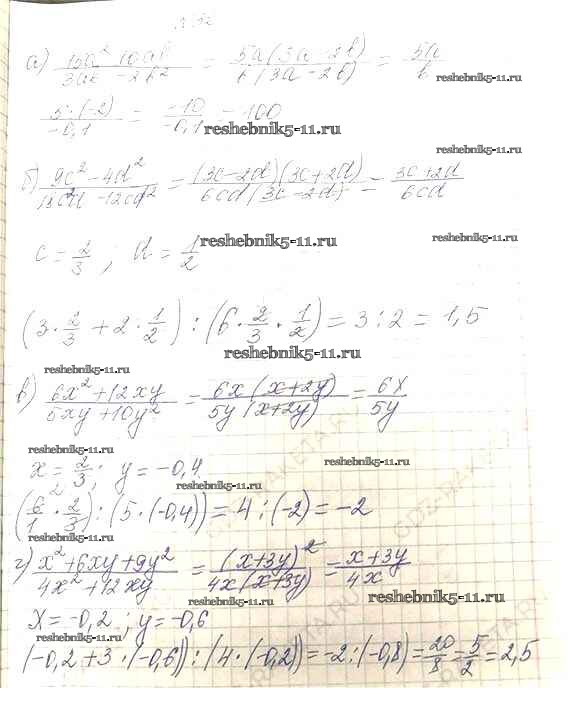 № 32
а) 15a² - 10ab / 3ab - 2b² = 5a(3a - 2b) / b(3a - 2b) = 5a / b
reshebnik5-11.ru
5·(-2) / -0,1 = -10 / -0,1 - 100
reshebnik5-11.ru
reshebnik5-11.ru
б) 9c² - 4d² / 18c²d - 12cd² = (3c - 2d)(3c + 2d) / 6cd(3c - 2d) = 3c + 2d / 6cd
reshebnik5-11.ru
reshebnik5-11.ru
c = 2/3 ; d = 1/2
(3 · 2/3 + 2 · 1/2) : (6 · 2/3 · 1/2) = 3 : 2 = 1,5
reshebnik5-11.ru
reshebnik5-11.ru
в) 6x² + 12xy / 5xy + 10y² = 6x(x + 2y) / 5y(x + 2y) = 6x / 5y
reshebnik5-11.ru
reshebnik5-11.ru
x = 2/3 ; y = -0,4
reshebnik5-11.ru
(6/1 · 2/3) : (5 · (-0,4)) = 4 : (-2) = -2
reshebnik5-11.ru
г) x² + 6xy + 9y² / 4x² + 12xy = (x + 3y)² / 4x(x + 3y) = x + 3y / 4x
reshebnik5-11.ru
x = -0,2 , y = -0,6
reshebnik5-11.ru
reshebnik5-11.ru
(-0,2 + 3 · (-0,6)) : (4 · (-0,2)) = -2 : (-0,8) = 20/8 = 5/2 = 2,5